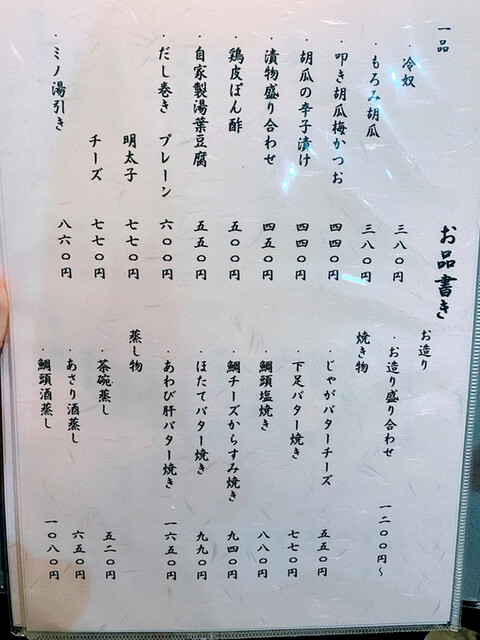 お品書き
一品
・冷奴 三八〇円
・もろみ胡瓜 三八〇円
・叩き胡瓜梅かつお 四四〇円
・胡瓜の辛子漬け 四四〇円
・漬物盛り合わせ 四五〇円
・鶏皮ぽん酢 五〇〇円
・自家製湯葉豆腐 五五〇円
・だし巻き プレーン 六〇〇円
明太子 七七〇円
チーズ 七七〇円
・ミノ湯引き 八六〇円
お造り
・お造り盛り合わせ 一二〇〇円〜
焼き物
・じゃがバターチーズ 五五〇円
・下足バター焼き 七七〇円
・鯛頭塩焼き 八八〇円
・鯛チーズからすみ焼き 九四〇円
・ほたてバター焼き 九九〇円
・あわび肝バター焼き 一六五〇円
蒸し物
・茶碗蒸し 五二〇円
・あさり酒蒸し 六五〇円
・鯛頭酒蒸し 一〇八〇円